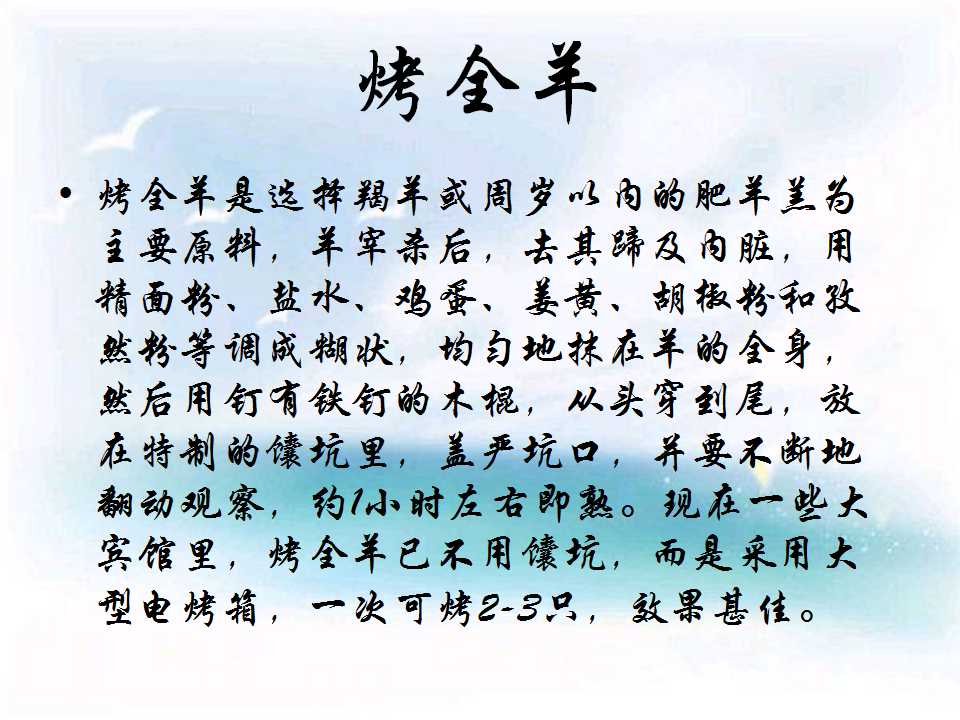 烤全羊
• 烤全羊是选择羯羊或周岁以内的肥羊羔为
主要原料，羊宰杀后，去其蹄及内脏，用
精面粉、盐水、鸡蛋、姜黄、胡椒粉和孜
然粉等调成糊状，均匀地抹在羊的全身，
然后用钉有铁钉的木棍，从头穿到尾，放
在特制的馕坑里，盖严坑口，并要不断地
翻动观察，约1小时左右即熟。现在一些大
宾馆里，烤全羊已不用馕坑，而是采用大
型电烤箱，一次可烤2-3只，效果甚佳。